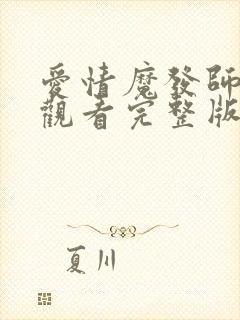 愛情魔發師
觀看完整版
夏川